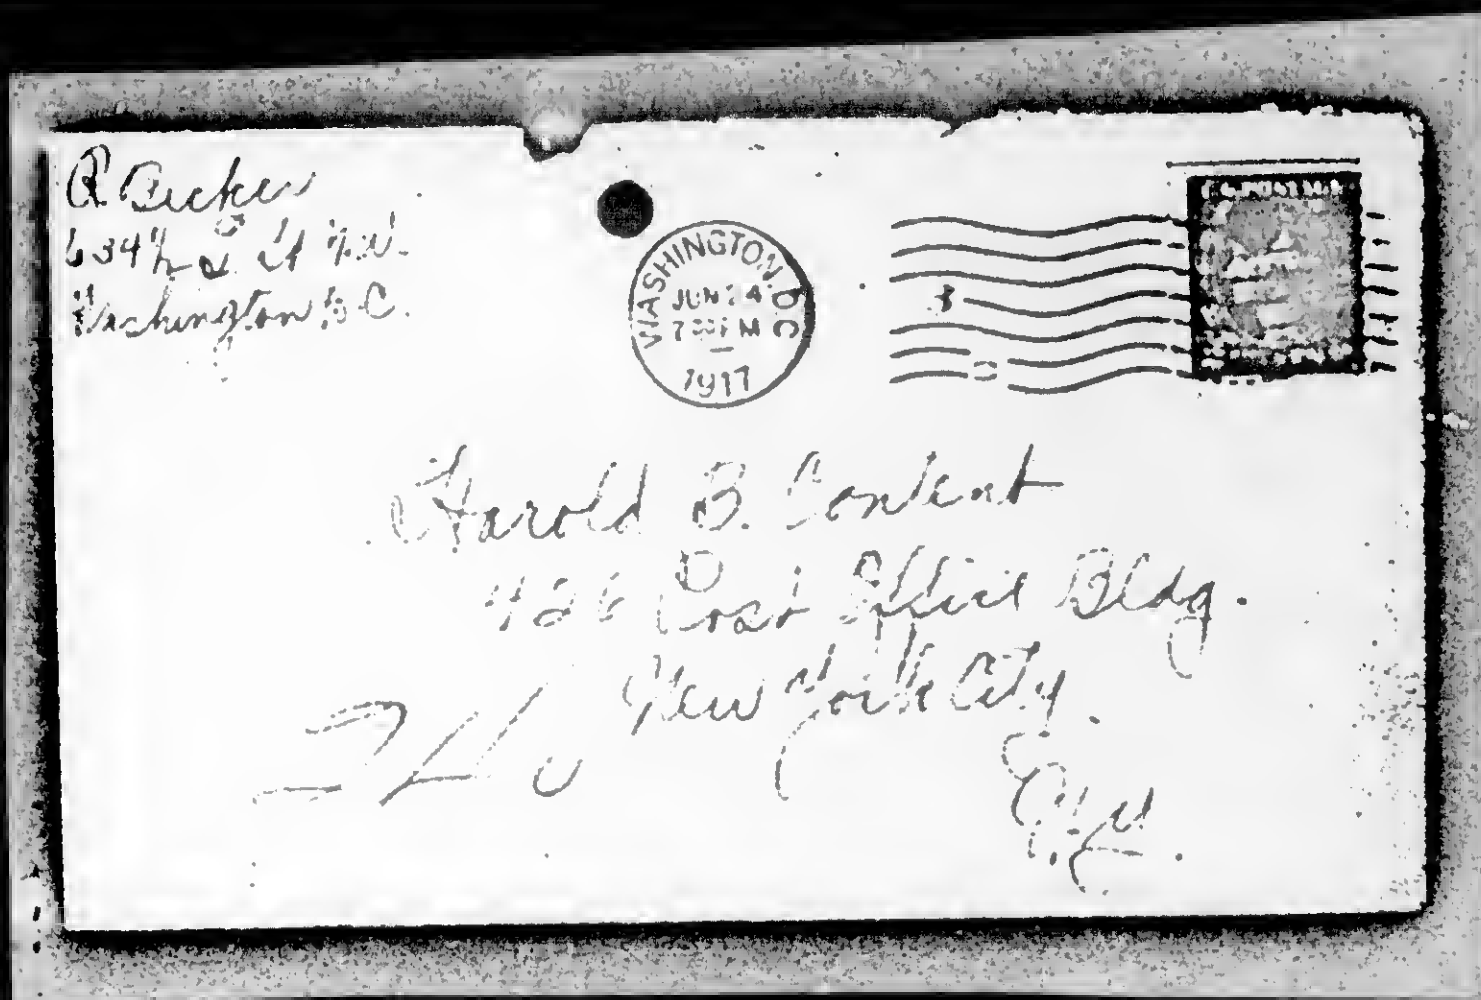 R. Becker
634½ St N.W.
Washington D.C.
WASHINGTON, D.C.
JUN 24
7 PM
1917
U.S. POSTAGE
Harold B. Content
426 Post Office Bldg.
New York City.
N.Y.